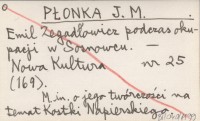 PŁONKA J. M.
Emil Zegadłowicz podczas oku-
pacji w Sosnowcu. —
Nowa Kultura nr 25
(169).
M.in. o jego twórczości na
temat Kostki Napierskiego.